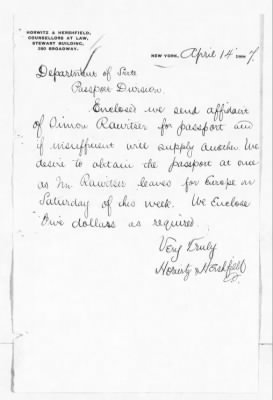 HORWITZ & HERSHFIELD,
COUNSELLORS AT LAW,
STEWART BUILDING,
280 BROADWAY.
NEW YORK, April 14 1887.
Department of State
Passport Division.
Enclosed we send affidavit
of Simon Rawitser for passport and
if insufficient will supply another. We
desire to obtain the passport at once
as Mr. Rawitser leaves for Europe on
Saturday of this week. We Enclose
five dollars as required.
Very Truly
Horwitz & Hershfield